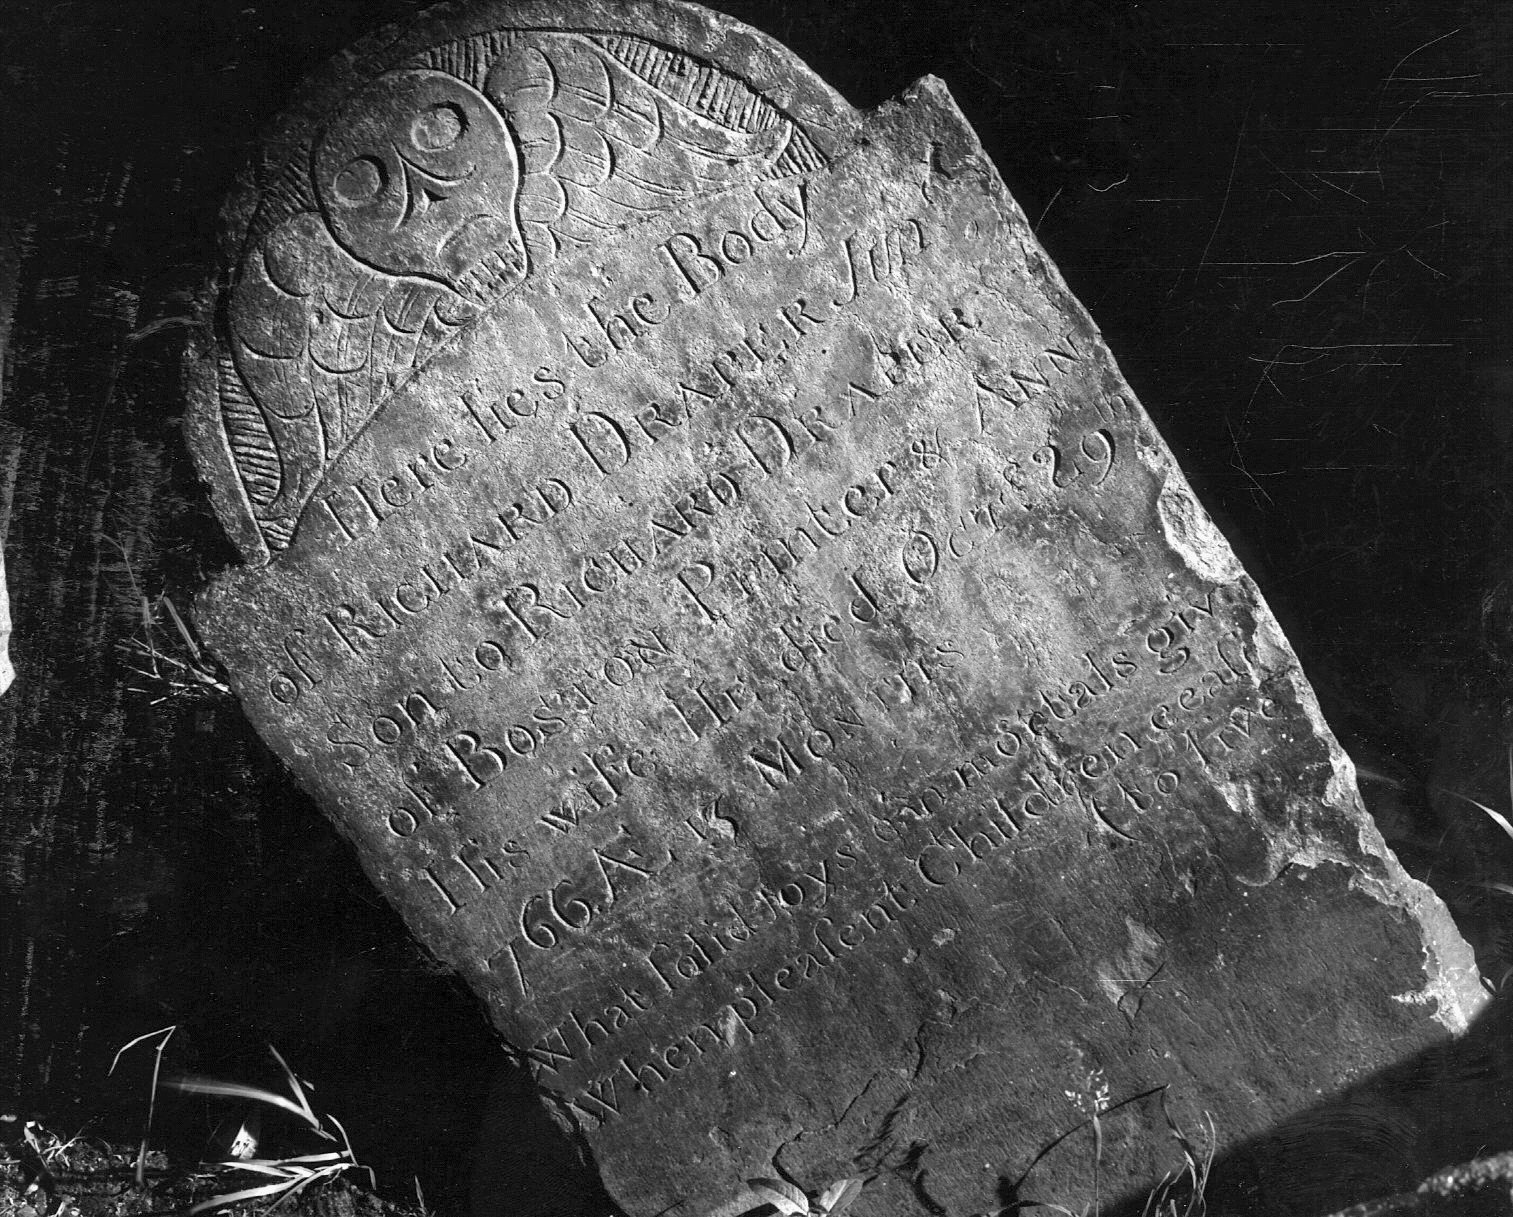 Here lies the Body
of RICHARD DRAPER Junr
Son to RICHARD DRAPER
of BOSTON Printer & ANN
His wife He died OCT ye 29th
766 Æ 15 MONTHS
What ſolid Joys can mortals giv
When pleaſent Children ceaſ
to live